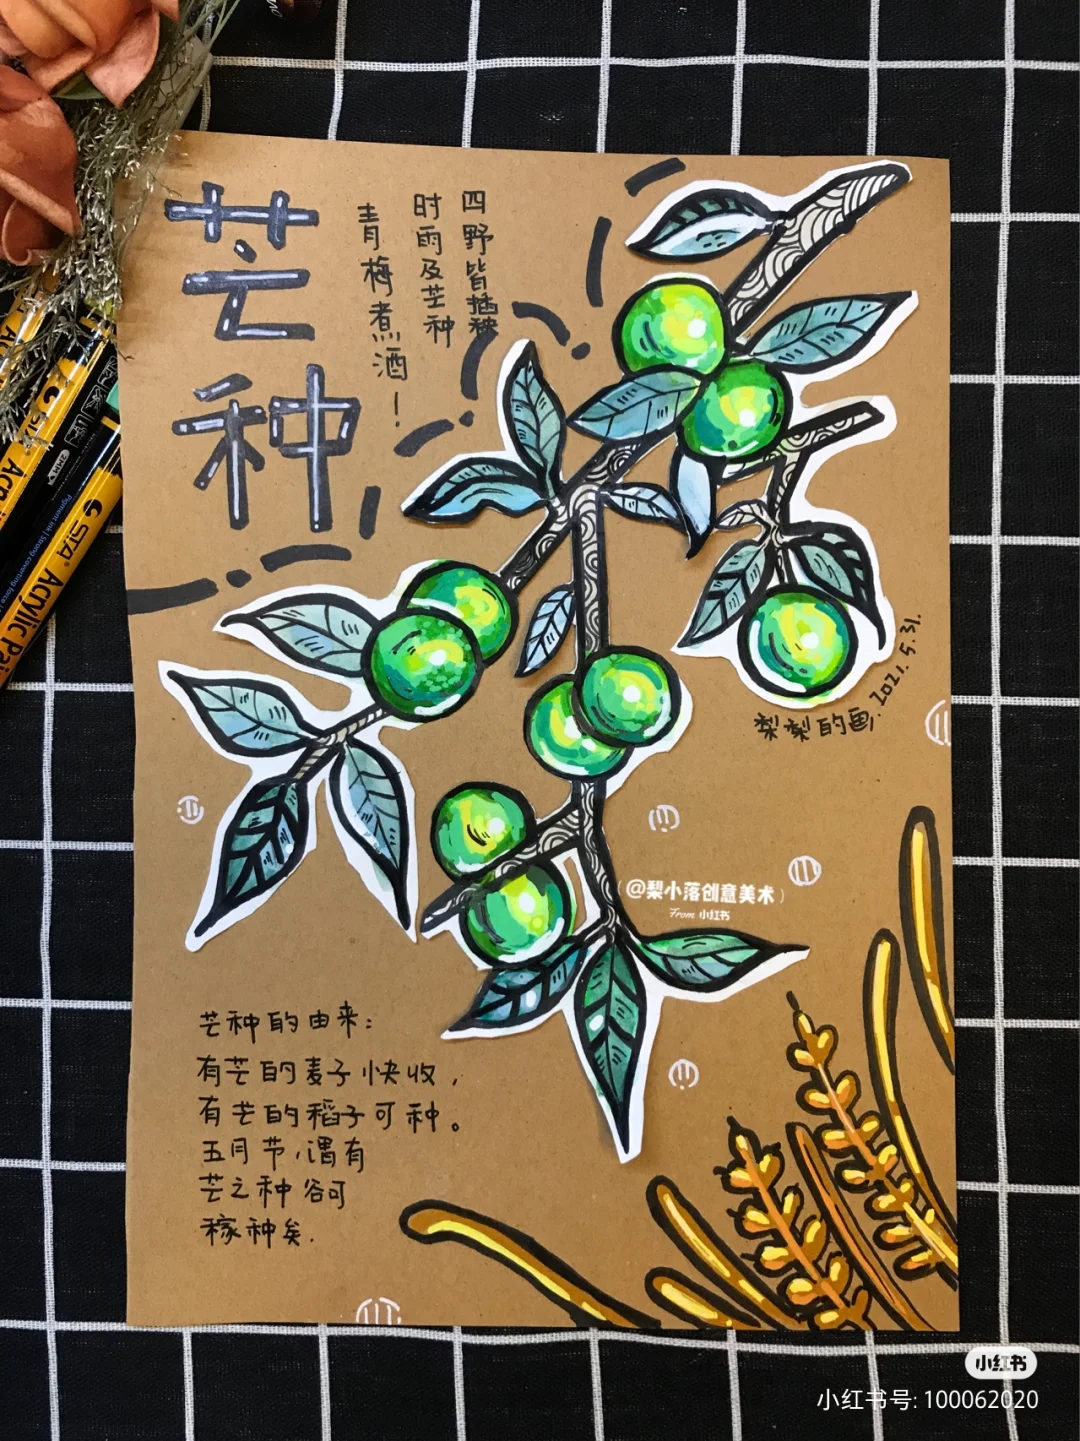 芒种
四野皆插秧
时雨及芒种
青梅煮酒！
STA
Acrylic Pa
Pigment ink | Strong covering force
梨梨的画. 2021.5.31.
(@梨小落创意美术)
From 小红书
芒种的由来:
有芒的麦子快收,
有芒的稻子可种。
五月节,谓有
芒之种谷可
稼种矣.
小红书
小红书号: 100062020